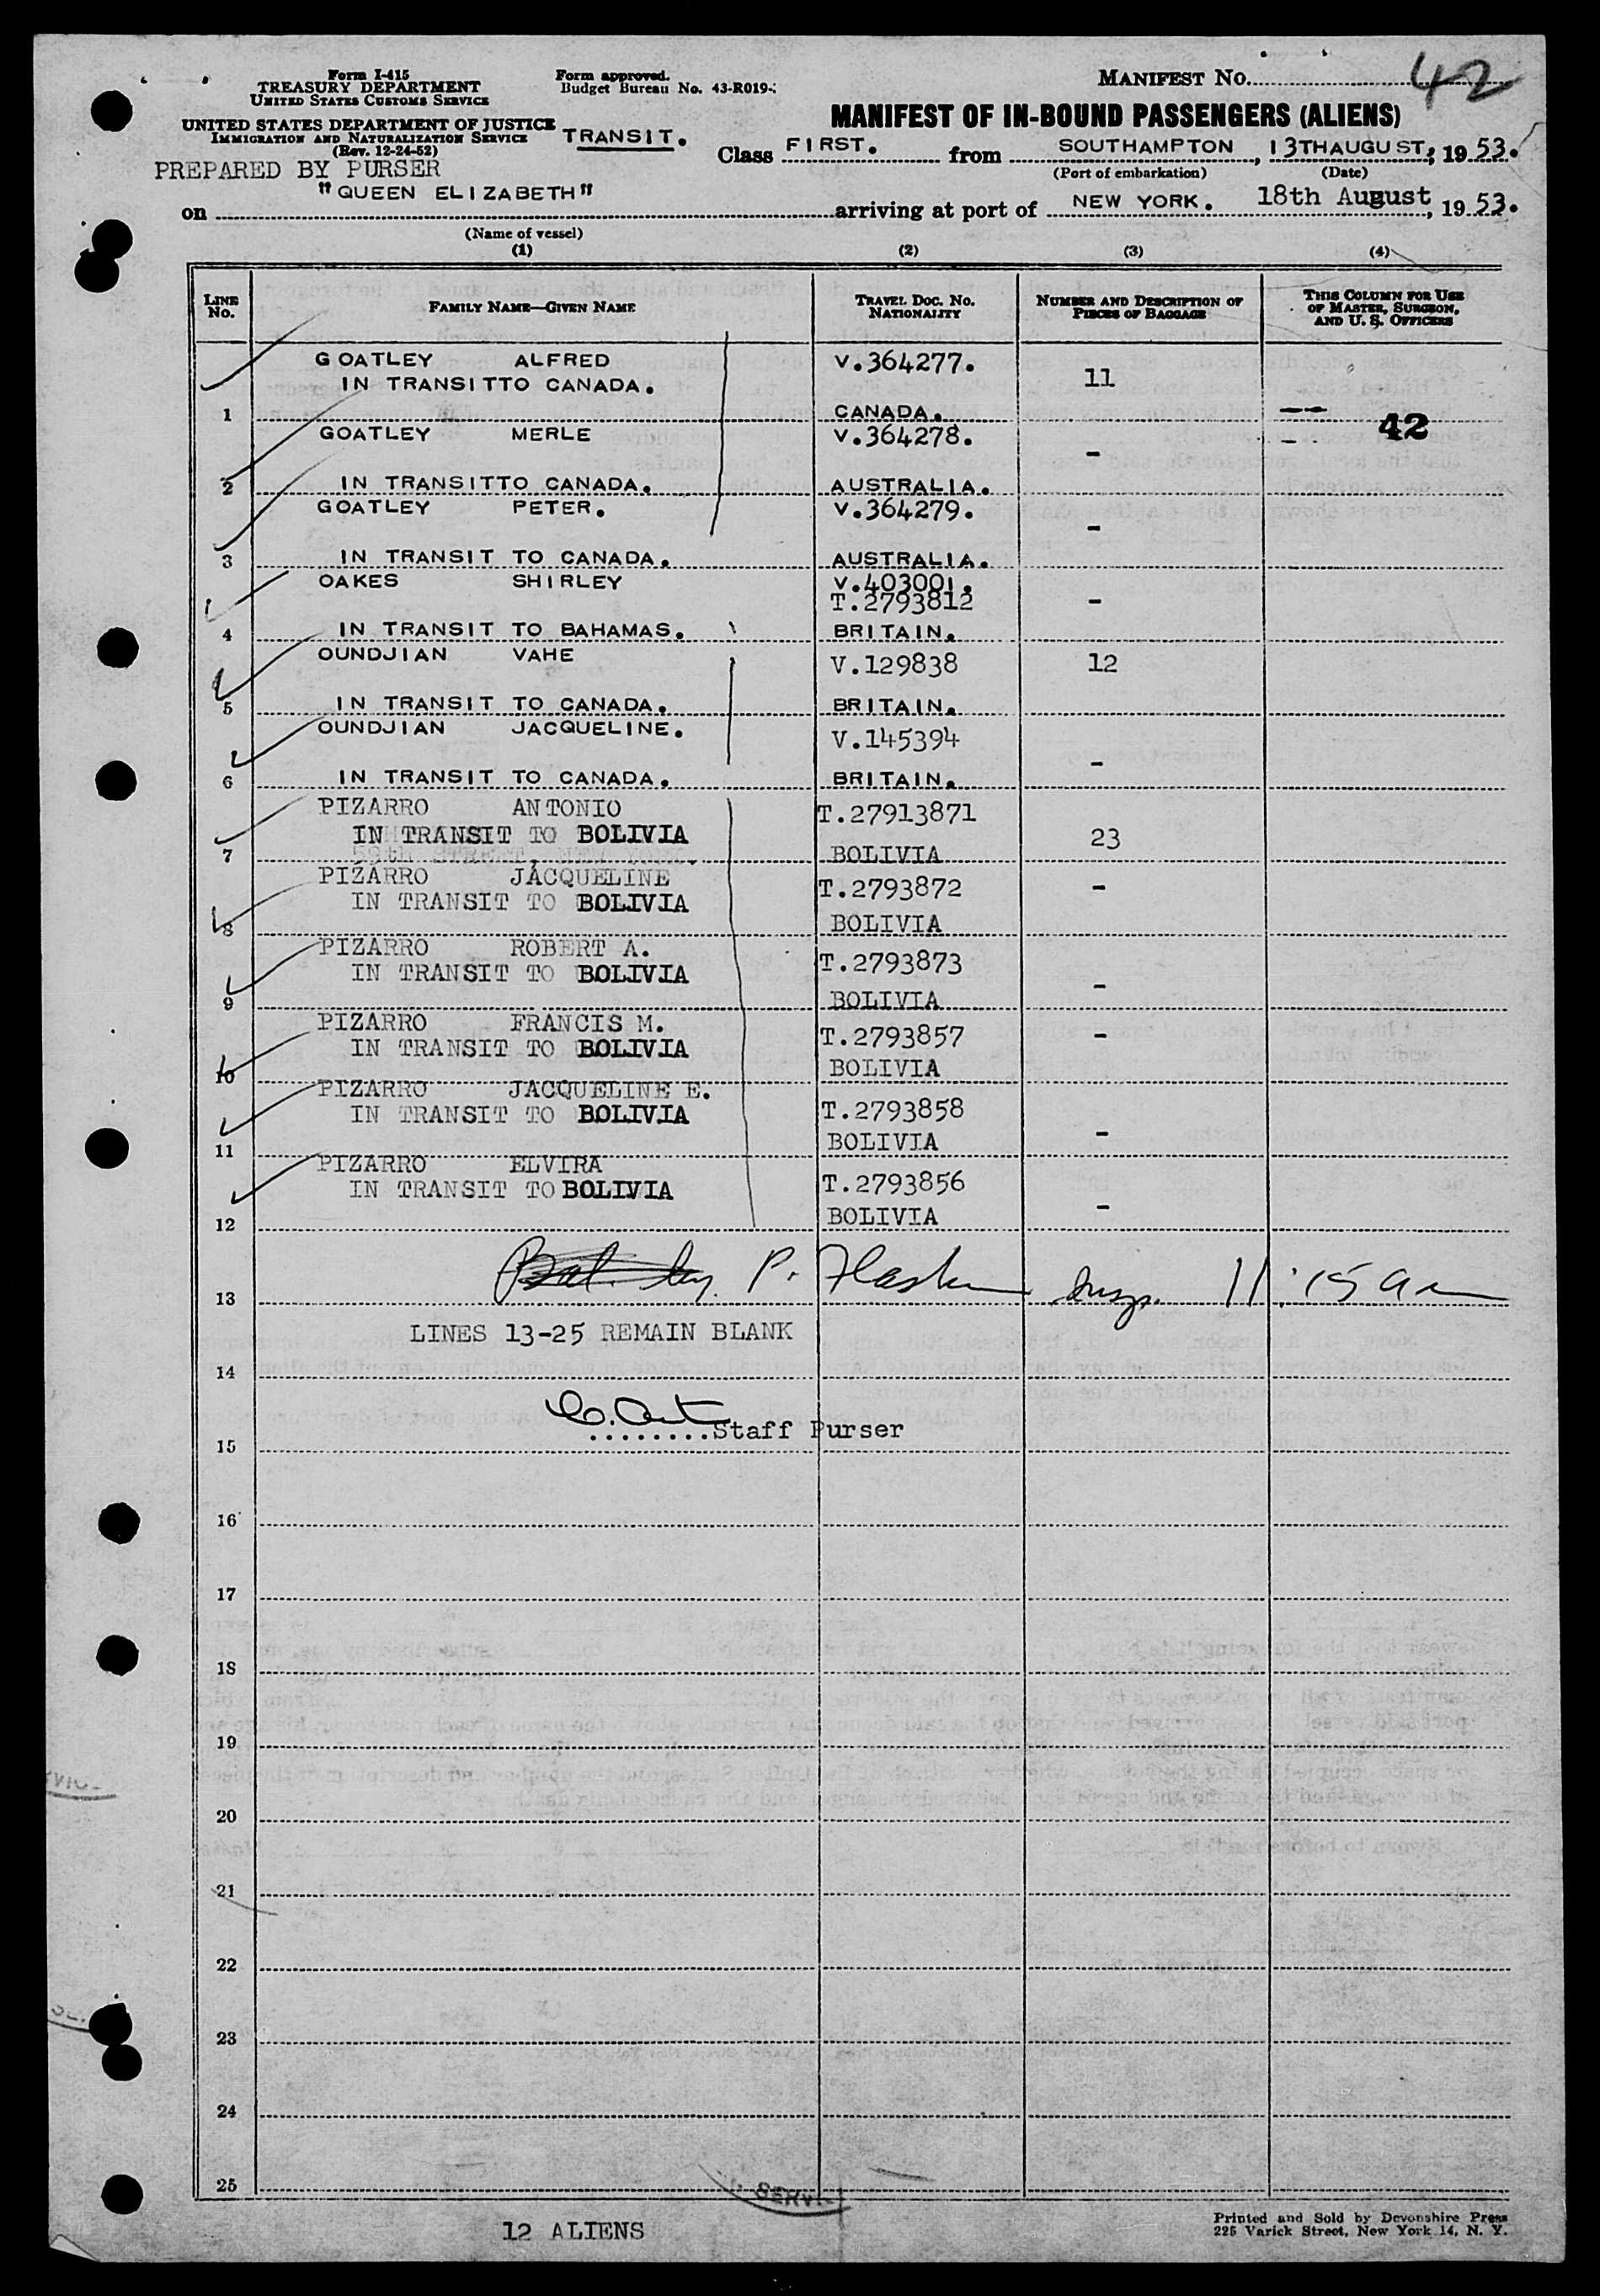 Form I-415
TREASURY DEPARTMENT
UNITED STATES CUSTOMS SERVICE
Form approved.
Budget Bureau No. 43-R019-
MANIFEST NO. 42
UNITED STATES DEPARTMENT OF JUSTICE
IMMIGRATION AND NATURALIZATION SERVICE
(Rev. 12-24-52)
TRANSIT.
MANIFEST OF IN-BOUND PASSENGERS (ALIENS)
PREPARED BY PURSER
Class FIRST. from SOUTHAMPTON, 13THAUGUST, 1953.
(Port of embarkation) (Date)
on "QUEEN ELIZABETH" arriving at port of NEW YORK. 18th August, 1953.
(Name of vessel)
(1) (2) (3) (4)
LINE No. FAMILY NAME—GIVEN NAME TRAVEL DOC. NO. NATIONALITY NUMBER AND DESCRIPTION OF PIECES OF BAGGAGE THIS COLUMN FOR USE OF MASTER, SURGEON, AND U. S. OFFICERS
GOATLEY ALFRED V.364277.
IN TRANSITTO CANADA. 11
1 CANADA. 42
GOATLEY MERLE V.364278.
-
2 IN TRANSITTO CANADA. AUSTRALIA.
GOATLEY PETER. V.364279.
-
3 IN TRANSIT TO CANADA. AUSTRALIA.
OAKES SHIRLEY V.403001.
T.2793812 -
4 IN TRANSIT TO BAHAMAS. BRITAIN.
OUNDJIAN VAHE V.129838 12
5 IN TRANSIT TO CANADA. BRITAIN.
OUNDJIAN JACQUELINE. V.145394
-
6 IN TRANSIT TO CANADA. BRITAIN.
PIZARRO ANTONIO T.27913871
IN TRANSIT TO BOLIVIA 23
7 59th STREET, NEW YORK. BOLIVIA
PIZARRO JACQUELINE T.2793872 -
IN TRANSIT TO BOLIVIA
8 BOLIVIA
PIZARRO ROBERT A. T.2793873
IN TRANSIT TO BOLIVIA -
9 BOLIVIA
PIZARRO FRANCIS M. T.2793857 -
IN TRANSIT TO BOLIVIA
10 BOLIVIA
PIZARRO JACQUELINE E. T.2793858
IN TRANSIT TO BOLIVIA -
11 BOLIVIA
PIZARRO ELVIRA T.2793856
IN TRANSIT TO BOLIVIA -
12 BOLIVIA
13 P. Insp. 11:15 am
LINES 13-25 REMAIN BLANK
14
........Staff Purser
15
16
17
18
19
20
21
22
23
24
25
SERVI
12 ALIENS
Printed and Sold by Devonshire Press
225 Varick Street, New York 14, N. Y.